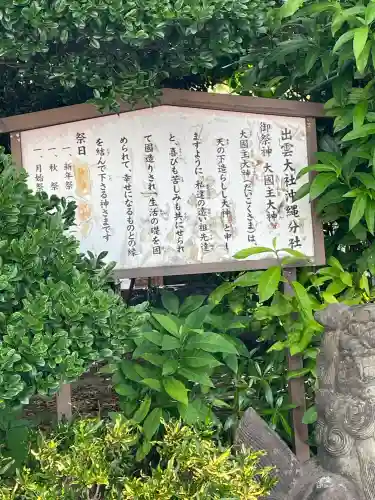 出雲大社沖縄分社
御祭神 大國主大神
大国主大神（だいこくさま）は
天の下造らしし大神と申し
ますように、私達の遠い祖先達
と、喜びも苦しみも共にせられ
て国造りされ、生活の礎を固
められて、幸せになるものとの縁
を結んで下さる神さまです
祭日
一、新年祭
一、秋祭
一、月始祭